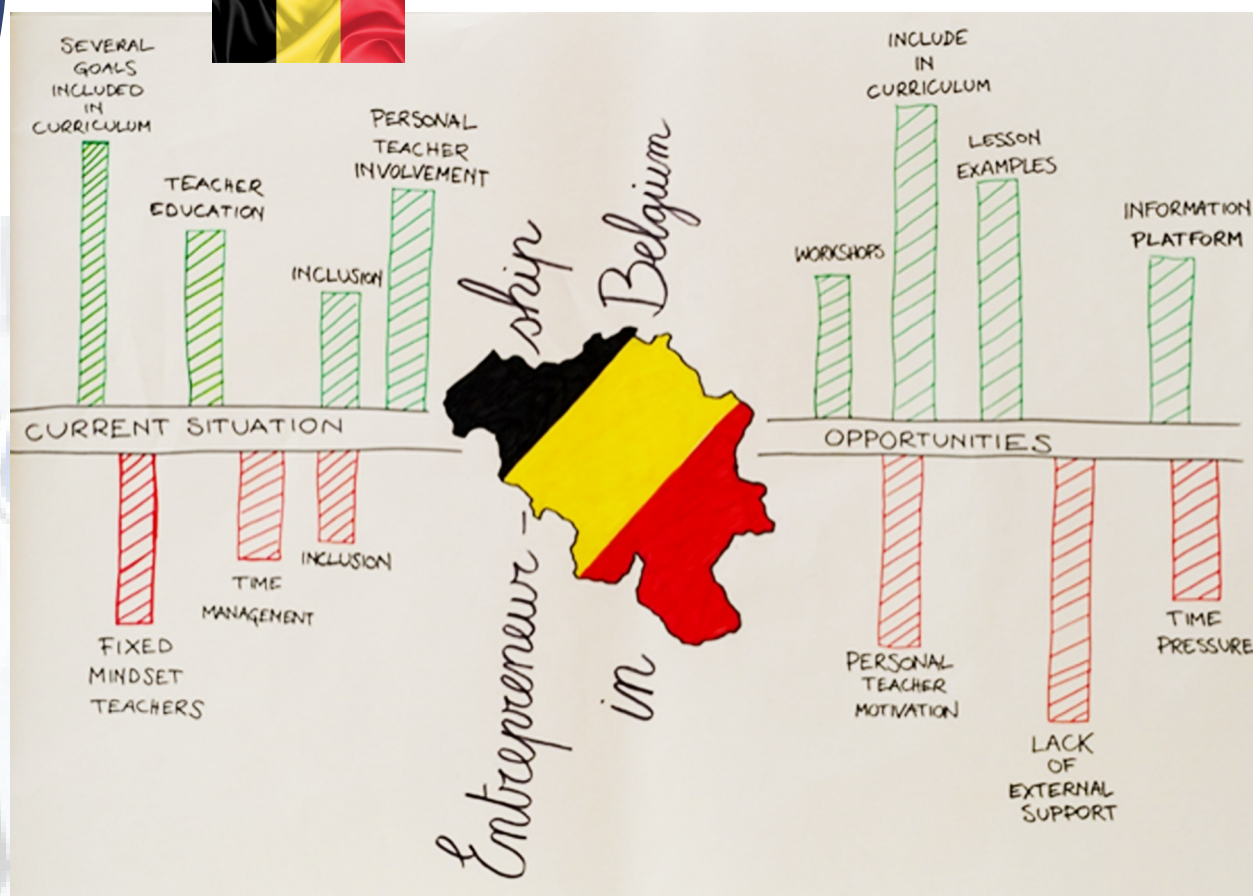 SEVERAL
GOALS
INCLUDED
IN
CURRICULUM
TEACHER
EDUCATION
INCLUSION
PERSONAL
TEACHER
INVOLVEMENT
CURRENT SITUATION
FIXED
MINDSET
TEACHERS
TIME
MANAGEMENT
INCLUSION
Entrepreneur-
ship
in
Belgium
WORKSHOPS
INCLUDE
IN
CURRICULUM
LESSON
EXAMPLES
INFORMATION
PLATFORM
OPPORTUNITIES
PERSONAL
TEACHER
MOTIVATION
LACK
OF
EXTERNAL
SUPPORT
TIME
PRESSURE